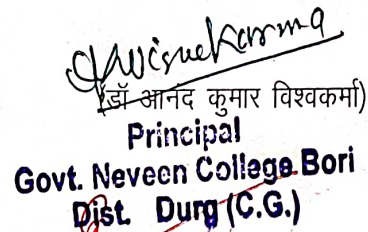 Avishwekarma
(डॉ आनंद कुमार विश्वकर्मा)
Principal
Govt. Neveen College Bori
Dist. Durg (C.G.)